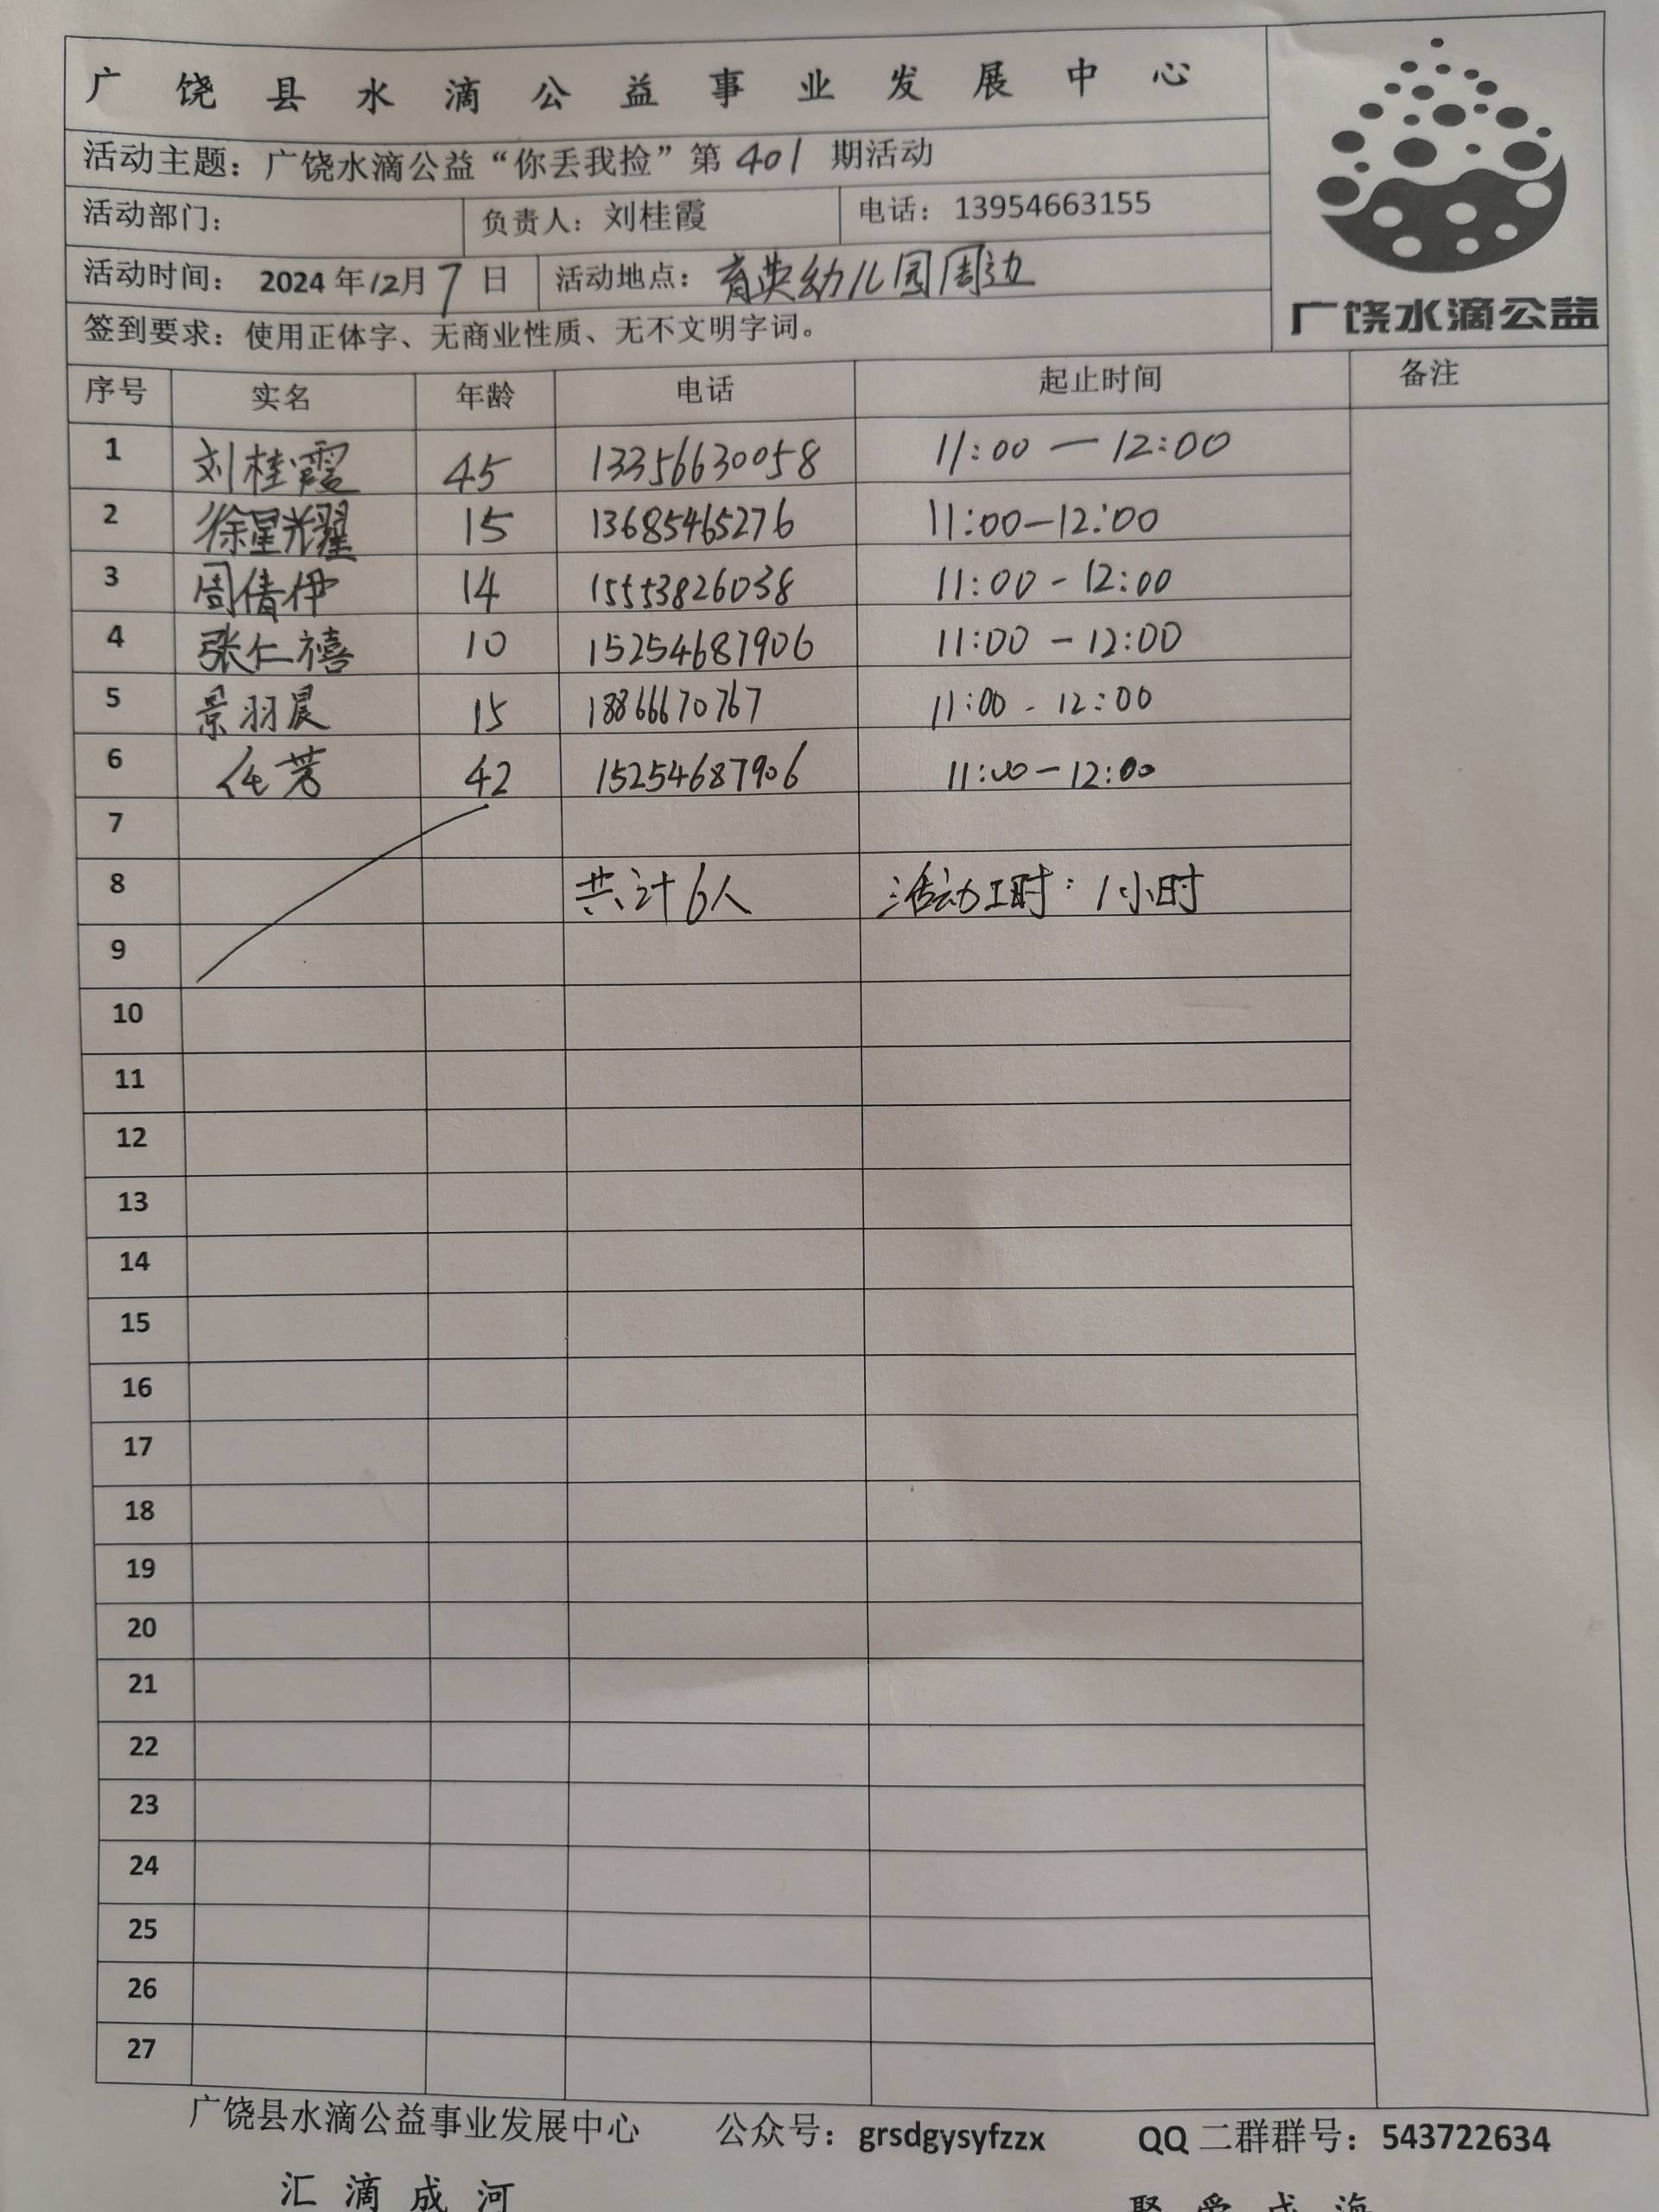 广饶县水滴公益事业发展中心
活动主题：广饶水滴公益“你丢我捡”第401期活动
活动部门： 负责人：刘桂霞 电话：13954663155
活动时间：2024年12月7日 活动地点：育英幼儿园周边
广饶水滴公益
签到要求：使用正体字、无商业性质、无不文明字词。
序号 实名 年龄 电话 起止时间 备注
1 刘桂霞 45 13356630058 11:00—12:00
2 徐星耀 15 13685465276 11:00—12:00
3 周倩伊 14 15553826038 11:00-12:00
4 张仁禧 10 15254687906 11:00-12:00
5 景羽晨 15 18866670767 11:00-12:00
6 任芳 42 15254687906 11:00-12:00
7
8 共计6人 活动工时：1小时
9
10
11
12
13
14
15
16
17
18
19
20
21
22
23
24
25
26
27
广饶县水滴公益事业发展中心 公众号：grsdgysyfzzx QQ二群群号：543722634
汇滴成河 聚爱成海